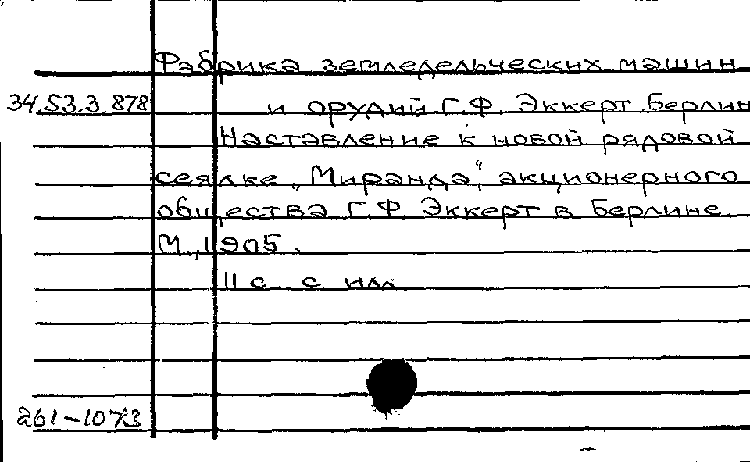 Фабрика земледельческих машин
34.53.3 878 и орудий Г.Ф. Эккерт. Берлин
Наставление к новой рядовой
сеялке „Миранда“, акционерного
общества Г.Ф. Эккерт в Берлине.
М., 1905.
11 с. с илл.
261-1073